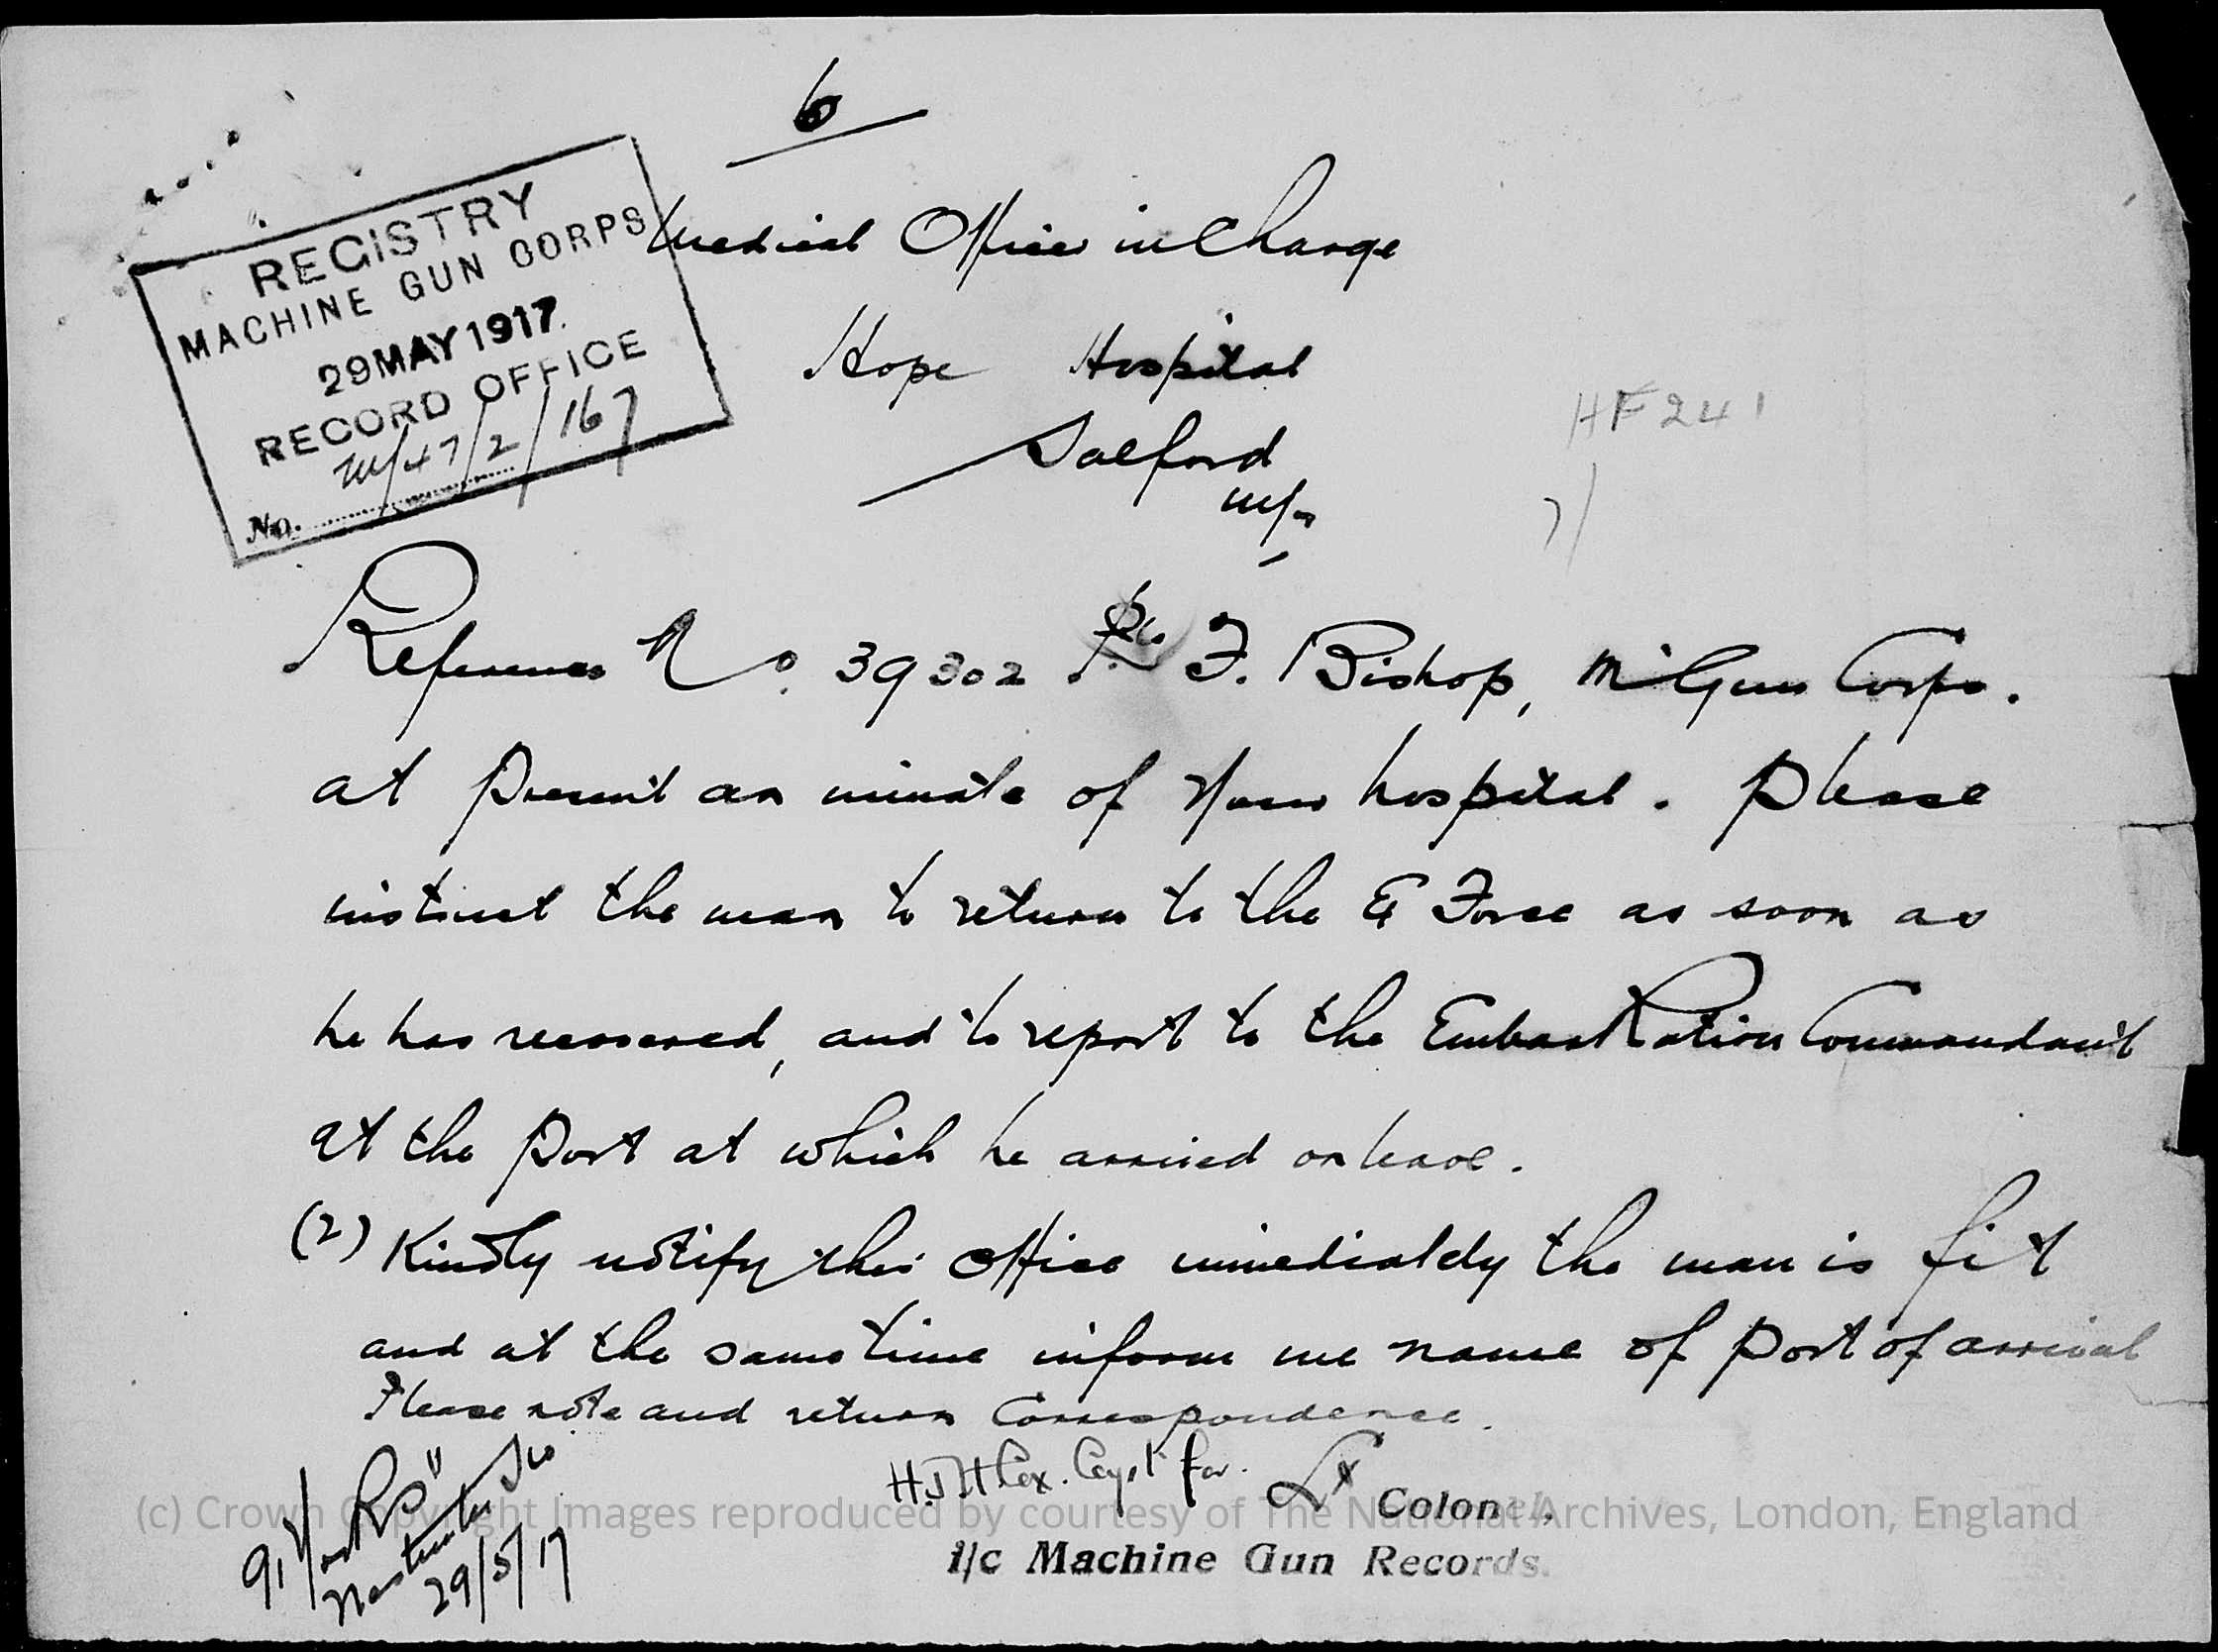 6
REGISTRY
MACHINE GUN CORPS
29 MAY 1917
RECORD OFFICE
No. M/47/2/167
Medical Officer in Charge
Hope Hospital
Salford
HF 241
Reference No. 39302 Pte F. Bishop, M' Gun Corps.
at present an inmate of your hospital. Please
instruct the man to return to the E Force as soon as
he has recovered, and to report to the Embarkation Commandant
at the Port at which he arrived on leave.
(2) Kindly notify this office immediately the man is fit
and at the same time inform me name of port of arrival
Please note and return Correspondence.
H.J.H Cox. Capt for. Lt Colonel,
i/c Machine Gun Records.
91 York St
Westminster SW
29/5/17
(c) Crown Copyright Images reproduced by courtesy of The National Archives, London, England